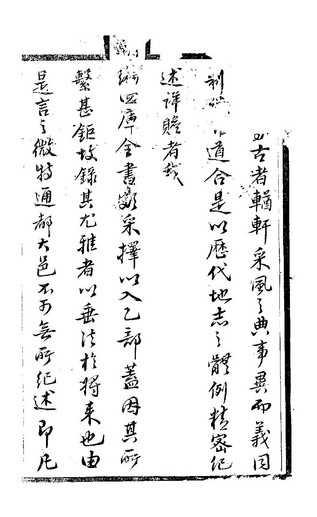 古者輶軒采風之典事異而義同
道合是以歷代地志之體例精密紀
述詳贍者哉
四庫全書采擇以入乙部蓋因其所
繫甚鉅故錄其尤雅者以垂法於將來也由
是言之微特通都大邑不可無所紀述即凡